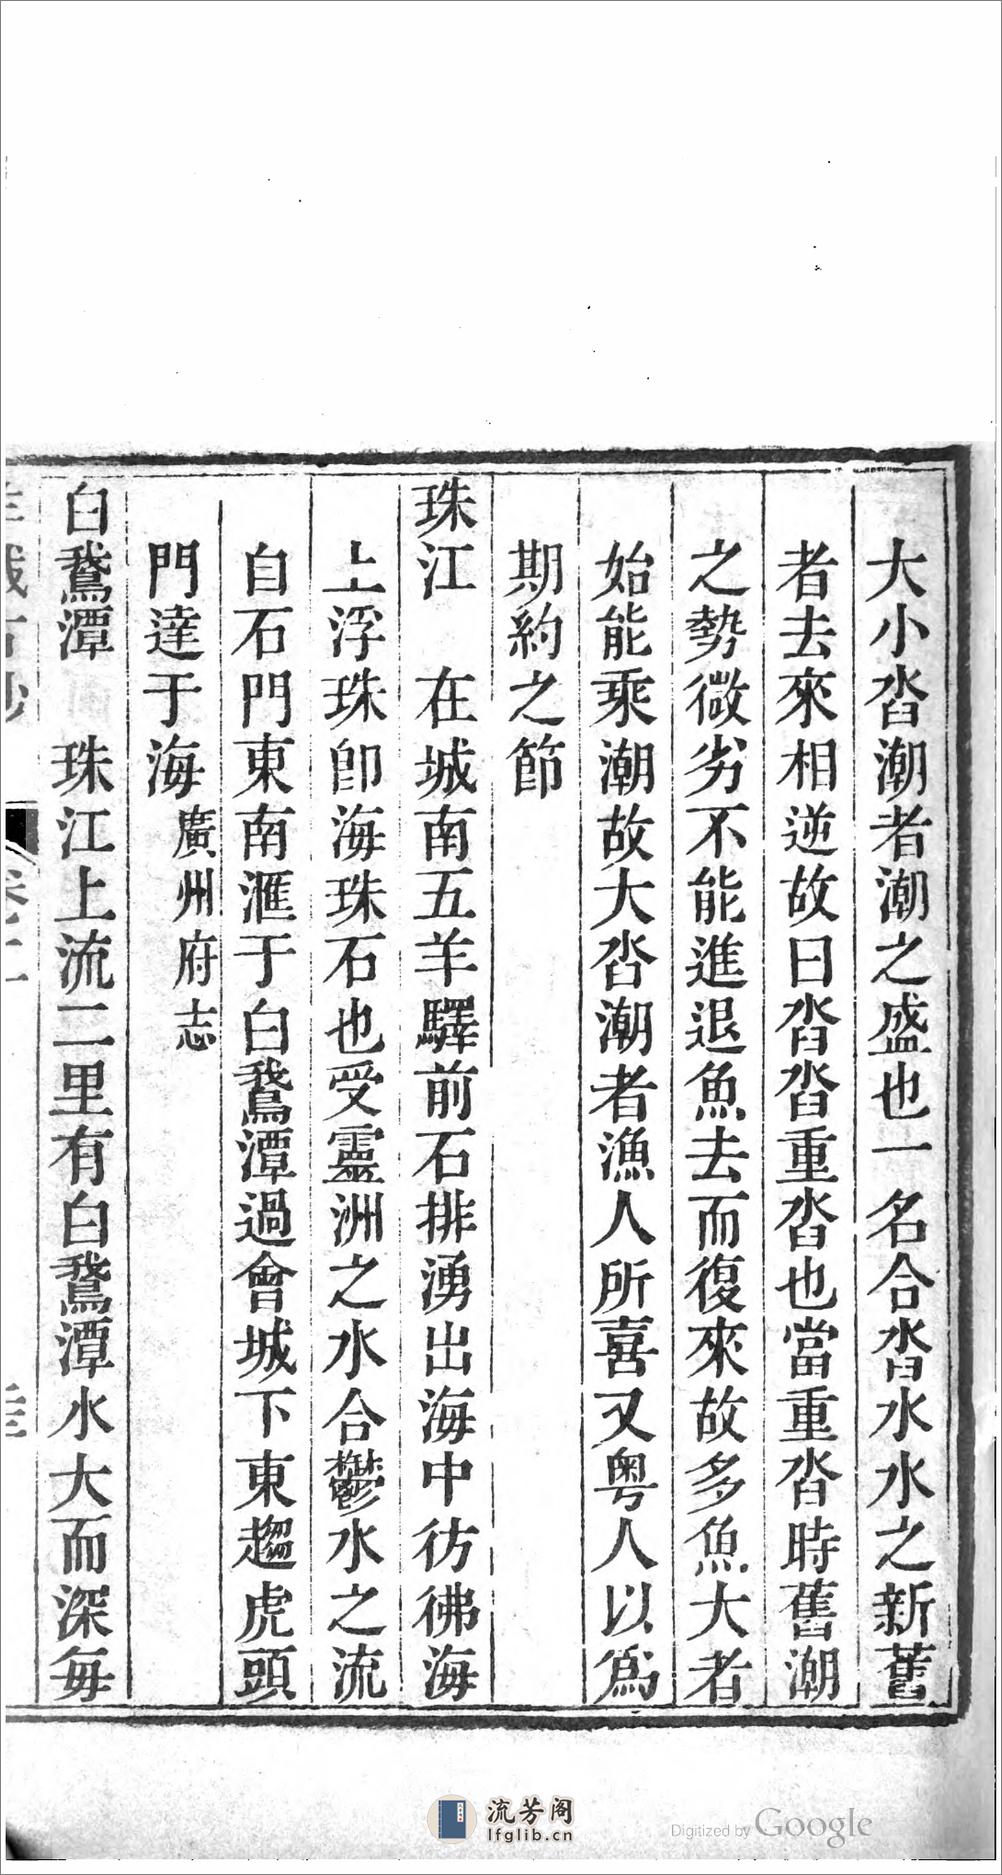 大小沓潮者潮之盛也一名合沓水水之新舊
者去來相逆故曰沓沓重沓也當重沓時舊潮
之勢微劣不能進退魚去而復來故多魚大者
始能乘潮故大沓潮者漁人所喜又粤人以爲
期約之節
珠江　在城南五羊驛前石排湧出海中彷彿海
上浮珠卽海珠石也受靈洲之水合鬱水之流
自石門東南滙于白鵞潭過會城下東趨虎頭
門達于海廣州府志
白鵞潭　珠江上流二里有白鵞潭水大而深每
流芳阁
lfglib.cn
Digitized by Google